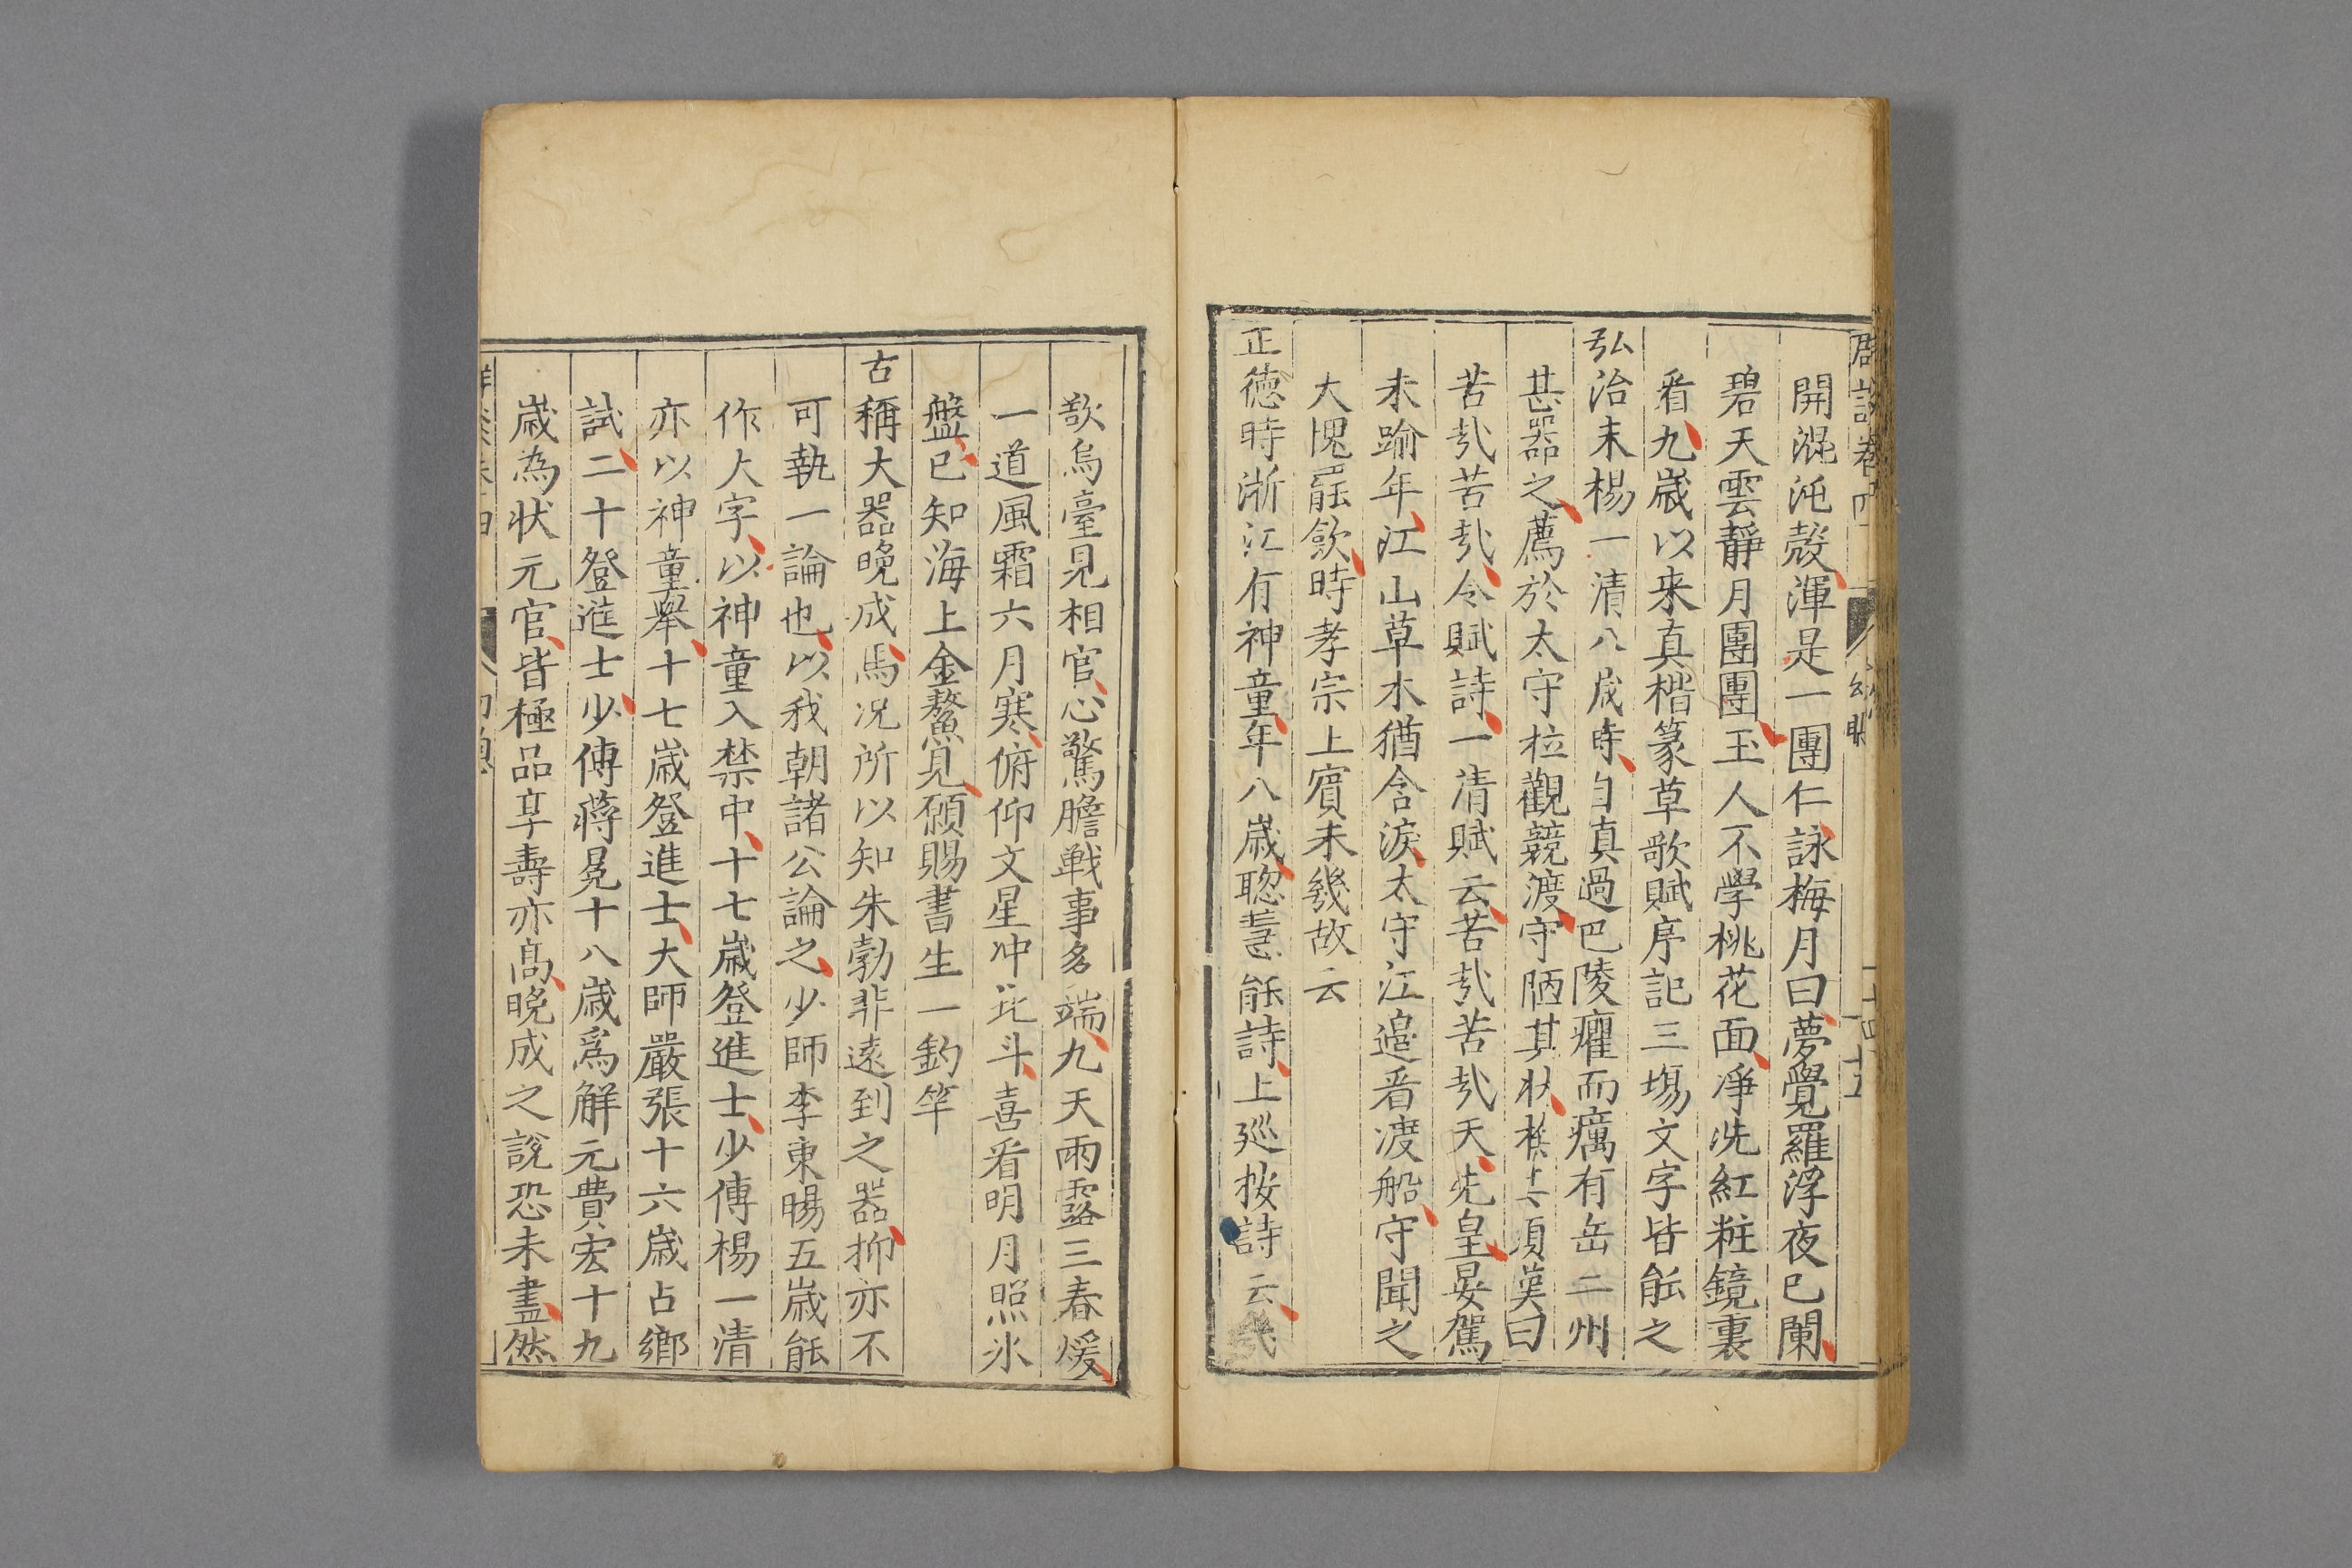 群談卷四
開混沌殼渾是一團仁詠梅月曰夢覺羅浮夜已闌
碧天雲靜月團團玉人不學桃花面凈洗紅粧鏡裏
看九歲以来真楷篆草歌賦序記三場文字皆能之
弘治末楊一清八歲時自真過巴陵癯而癘有岳二州
甚器之薦於太守拉觀競渡守陋其狀其項嘆曰
苦哉苦哉令賦詩一清賦云苦哉苦哉天先皇晏駕
未踰年江山草木猶含淚太守江邉看渡船守聞之
大愧罷飲時孝宗上賓未幾故云
正徳時浙江有神童年八歲聦慧能詩上廵按詩云幾
歌烏臺見相官心驚膽戰事多端九天雨露三春煖
一道風霜六月寒俯仰文星冲北斗喜看明月照氷
盤已知海上金鰲見願賜書生一釣竿
古稱大器晚成馬况所以知朱勃非遠到之器抑亦不
可執一論也以我朝諸公論之少師李東暘五歲能
作大字以神童入禁中十七歲登進士少傅楊一清
亦以神童舉十七歲登進士大師嚴張十六歲占鄉
試二十登進士少傅蔣冕十八歲爲解元費宏十九
歲為狀元官皆極品享壽亦高晚成之說恐未盡然